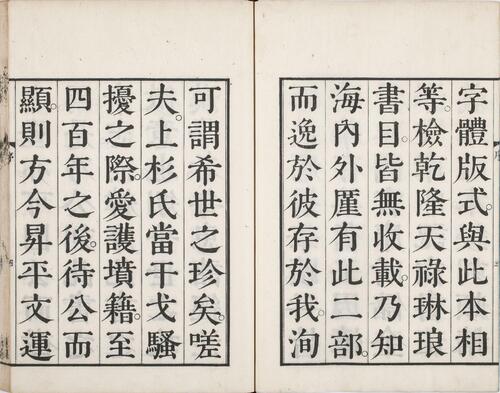 字體版式。與此本相
等。檢乾隆天祿琳琅
書目。皆無收載。乃知
海內外厪有此二部。
而逸於彼存於我。洵
可謂希世之珍矣。嗟
夫。上杉氏當干戈騷
擾之際。愛護墳籍。至
四百年之後。待公而
顯。則方今昇平文運